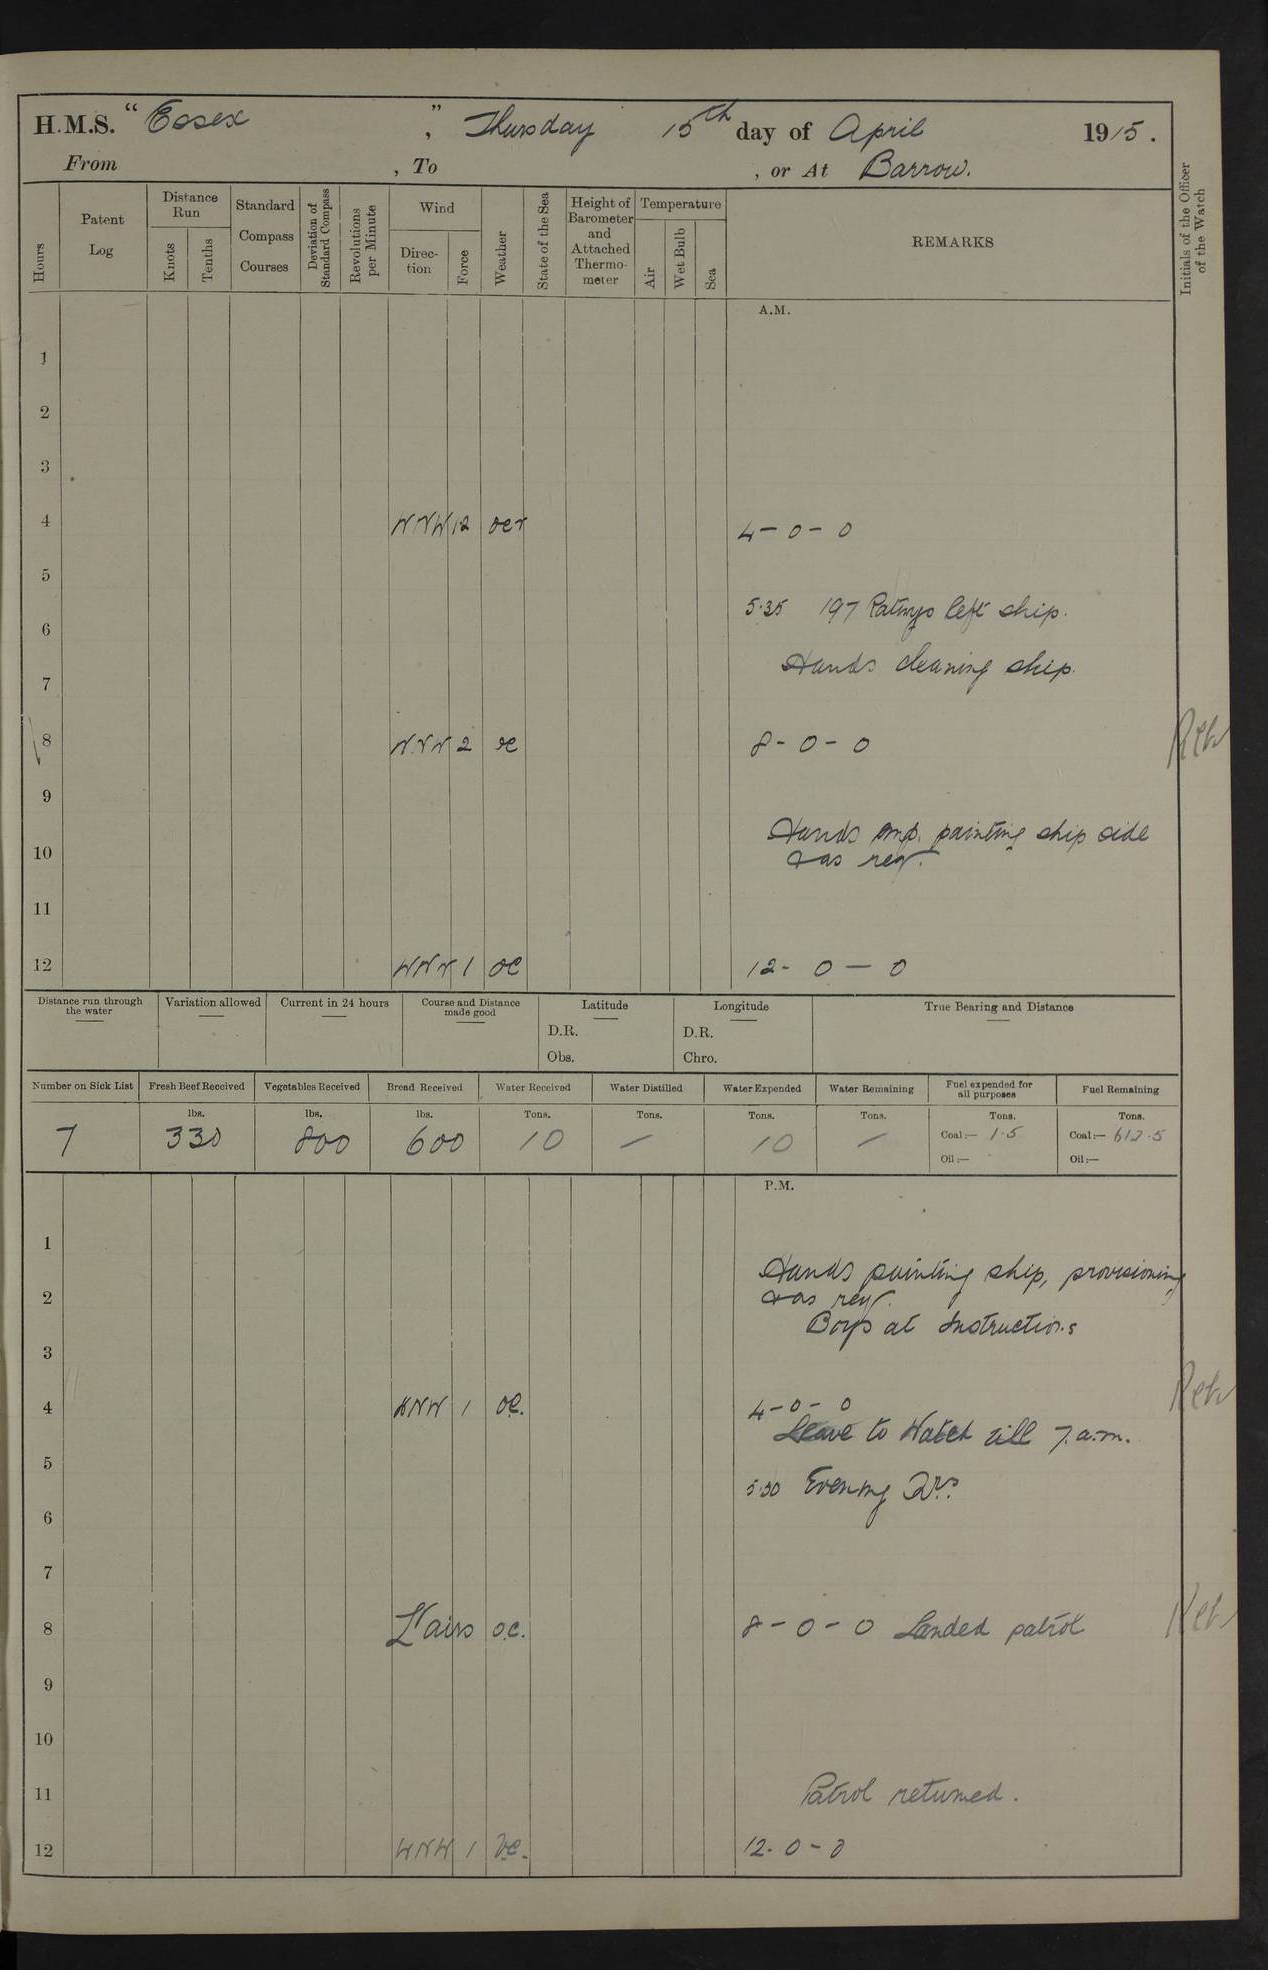 H.M.S. "Essex", Thursday 15th day of April 1915.
From , To , or At Barrow.
Hours
Patent Log
Distance Run
Knots
Tenths
Standard Compass Courses
Deviation of Standard Compass
Revolutions per Minute
Wind
Direction
Force
Weather
State of the Sea
Height of Barometer and Attached Thermometer
Temperature
Air
Wet Bulb
Sea
REMARKS
Initials of the Officer of the Watch
A.M.
1
2
3
4 oer 4-0-0
5
5.35 197 Ratings left ship.
6
Hands cleaning ship.
7
8 2 oc 8-0-0
9
Hands emp. painting ship side
10
& as req.
11
12 1 oc 12-0-0
Distance run through the water
Variation allowed
Current in 24 hours
Course and Distance made good
Latitude
D.R.
Obs.
Longitude
D.R.
Chro.
True Bearing and Distance
Number on Sick List
Fresh Beef Received
Vegetables Received
Bread Received
Water Received
Water Distilled
Water Expended
Water Remaining
Fuel expended for all purposes
Fuel Remaining
lbs. lbs. lbs. Tons. Tons. Tons. Tons. Tons. Tons.
7 330 800 600 10 — 10 — Coal:— 1.5 Coal:— 612.5
Oil:— Oil:—
P.M.
1
Hands painting ship, provisioning
2
& as req.
Boys at Instructions
3
4 WNW 1 o.c. 4-0-0
Leave to Watch till 7.a.m.
5
5.30 Evening Qrs.
6
7
8 Lt airs o.c. 8-0-0 Landed patrol
9
10
11 Patrol returned.
12 WNW 1 12-0-0